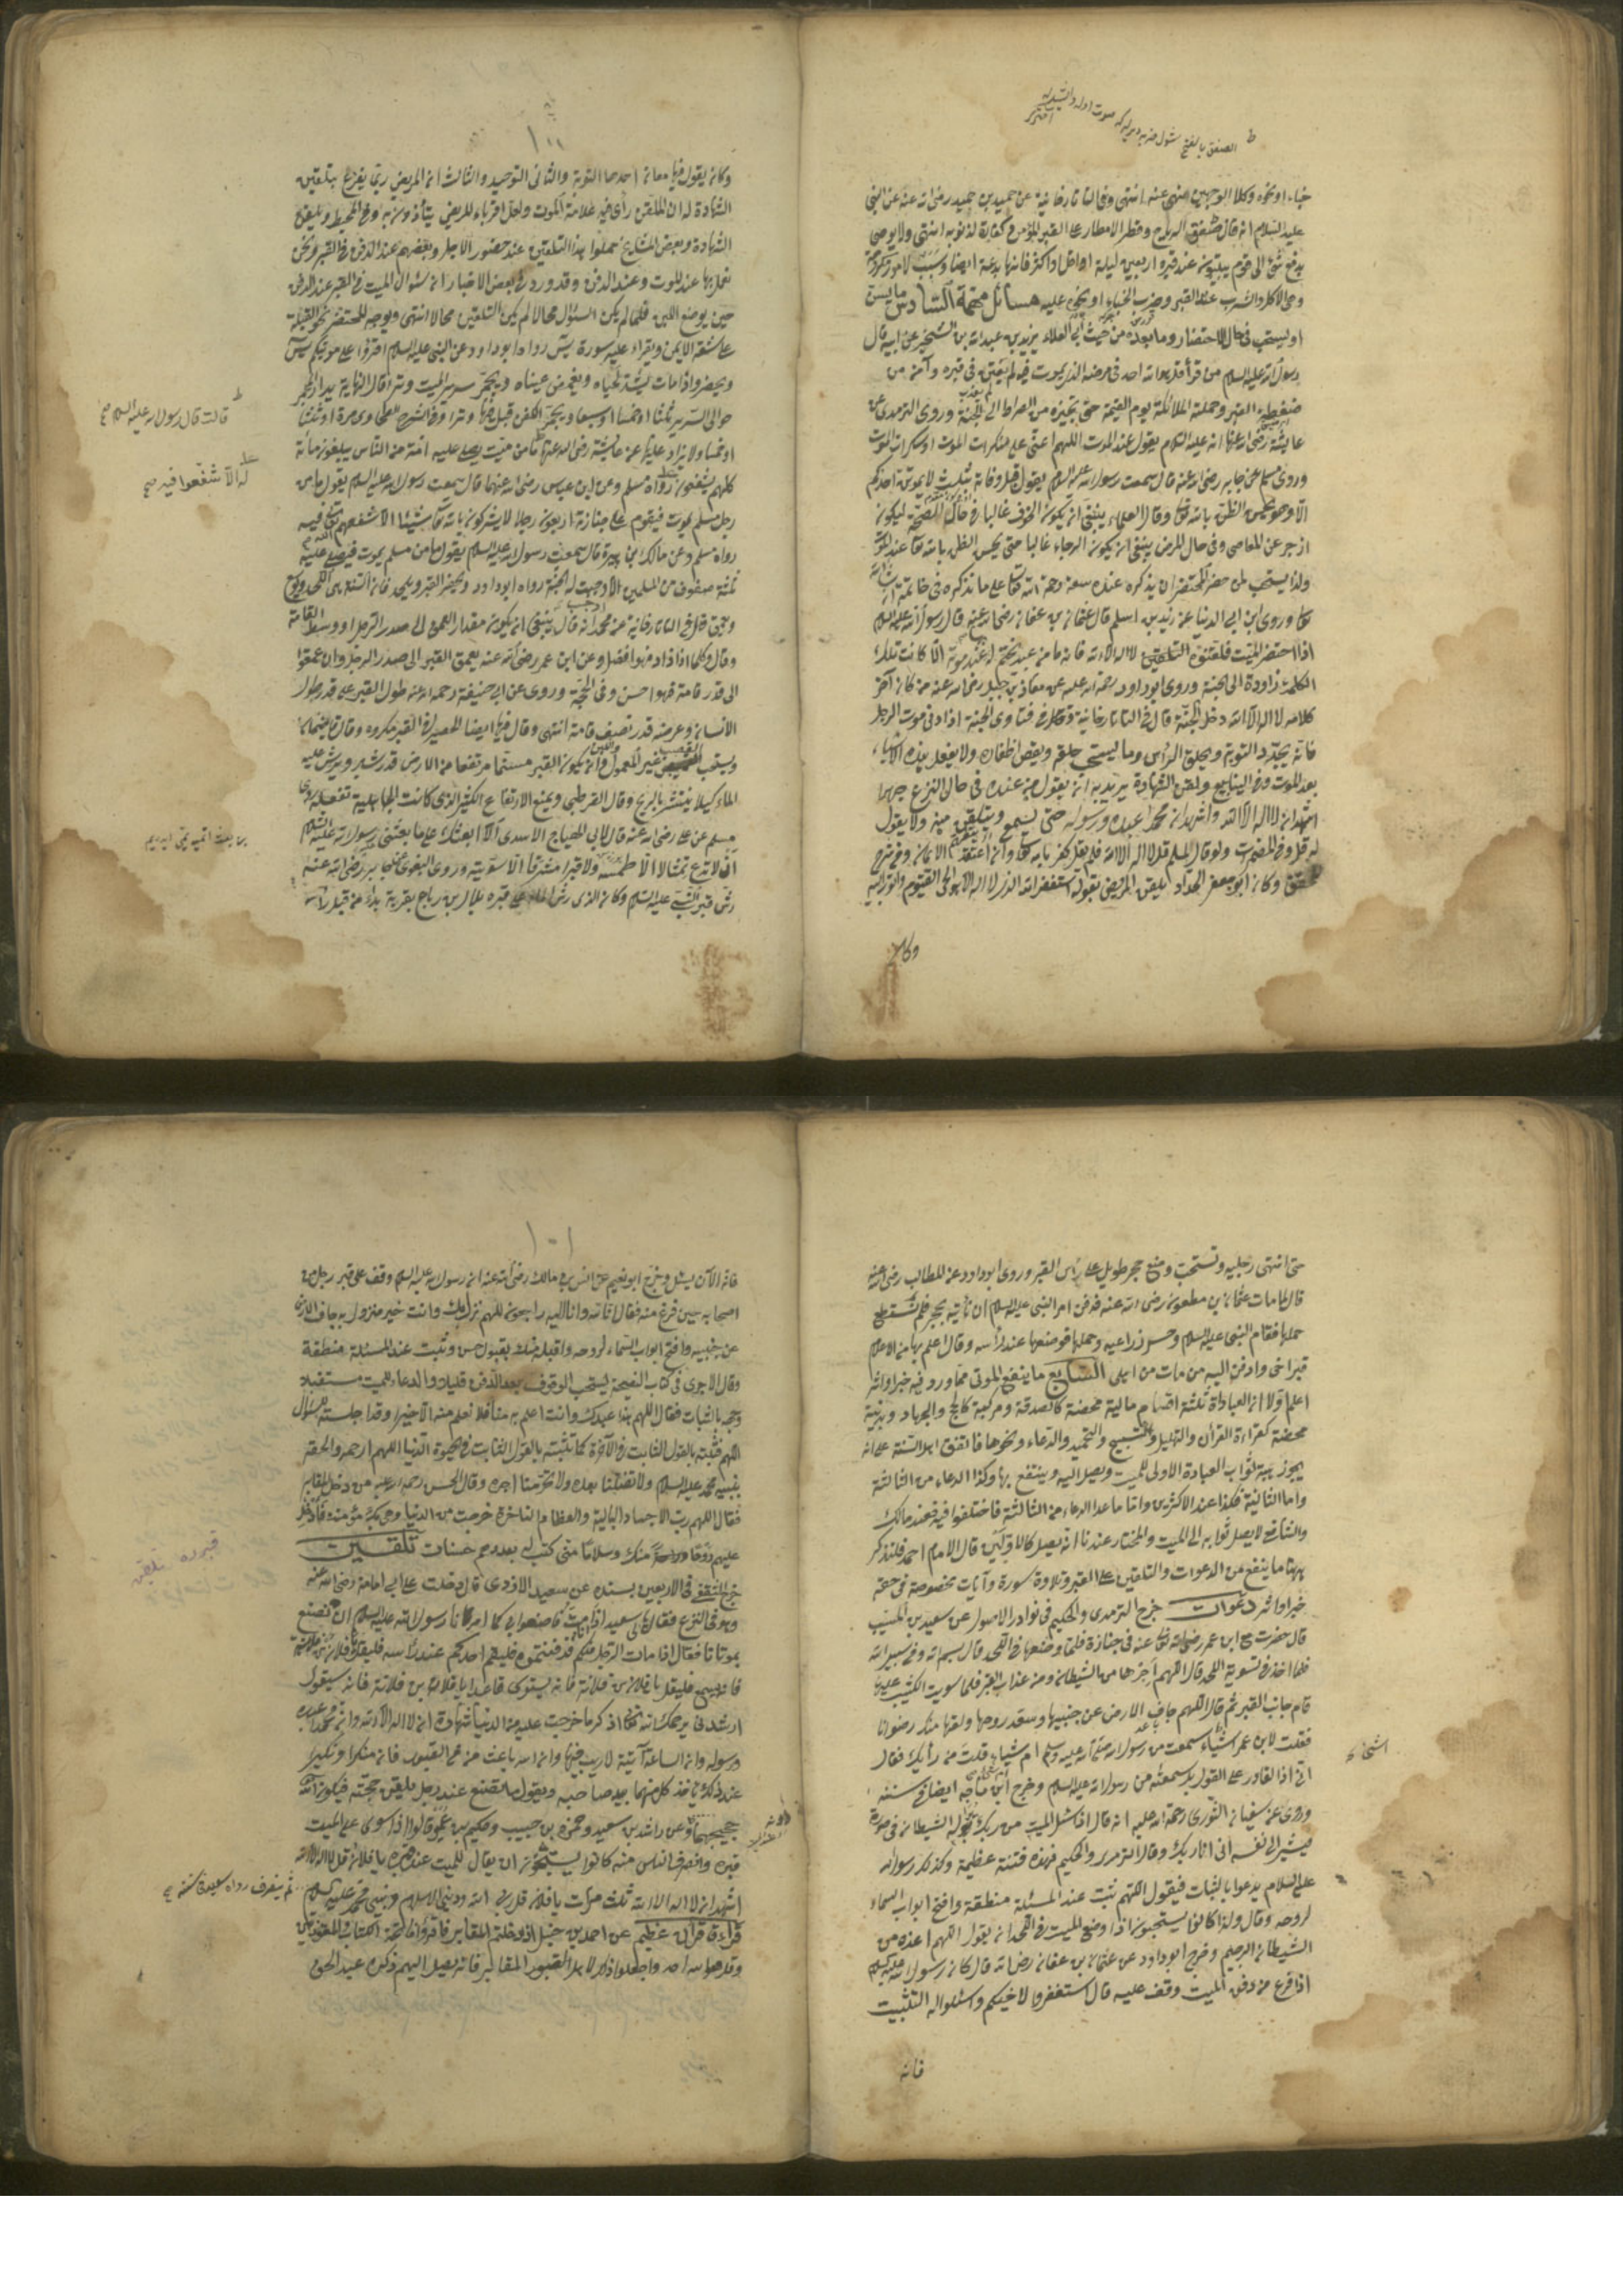 خباء او نحوه وكلا الوجهين منهى عنه انتهى وفى التاتارخانية عن حميد بن حميد رضى الله عنه عن النبى
عليه السلام انه قال صفق الرياح وقطر الامطار على القبر المؤمن كفارة لذنوبه انتهى ولا يوصى
بدفع شئ الى قوم يبيتون عند قبره اربعين ليلة او اقل او اكثر فانها بدعة ايضا
وهى الاكل والشرب عند القبر وضرب الخباء او نحوه عليه مسائل مهمة السادس ما يسن
او يستحب فى حال الاحتضار وما بعده من حيث ابى العلاء يزيد بن عبد الله بن الشخير عن ابيه قال
رسول الله عليه السلام من قرأ قل هو الله احد فى مرضه الذى يموت فيه لم يفتن فى قبره وآمن من
ضغطة القبر وحملته الملائكة يوم القيمة حتى تجيزه من الصراط الى الجنة وروى الترمذى عن
عايشة رضى الله عنها انه عليه السلام يقول عند الموت اللهم اعنى على منكرات الموت او سكرات الموت
وروى مسلم عن جابر رضى الله عنه قال سمعت رسول الله عليه السلام يقول قبل وفاته بثلث لا يموتن احدكم
الا وهو يحسن الظن بالله تعالى وقال العلماء ينبغى ان يكون الخوف غالبا فى حال الصحة ليكون
ازجر عن المعاصى وفى حال المرض ينبغى ان يكون الرجاء غالبا حتى يحسن الظن بالله تعالى عند الموت
ولذا يستحب لمن حضر المحتضر ان يذكره عنده سعة رحمة الله تعالى على ما نذكره فى خاتمة
وروى ابن ابى الدنيا عن زيد بن اسلم قال عثمان بن عفان رضى الله عنه قال رسول الله عليه السلام
اذا احتضر الميت فلقنوه لا اله الا الله فانه ما من عبد يختم له عند موته الا كانت تلك
الكلمة زاده الى الجنة وروى ابو داود رحمة الله عليه عن معاذ بن جبل رضى الله عنه من كان آخر
كلامه لا اله الا الله دخل الجنة قال فى التاتارخانية وقال فى فتاوى الحجة اذا دنى موت الرجل
فانه يجدد التوبة ويحلق الرأس وما يستحق حلقه ويقص اظفاره ولا يفعل هذه الاشياء
بعد الموت وفى الينابيع ولقن الشهادة يريد به ان يقول من عنده فى حال النزع جهرا
اشهد ان لا اله الا الله واشهد ان محمدا عبده ورسوله حتى يسمع ويتلقن منه ولا يقول
له قل وفى المضمرات ولو قال المسلم قل لا اله الا الله فلم يقل كفر بالله تعالى
وكان ابو جعفر الحداد يلقن المريض بقوله استغفر الله الذى لا اله الا هو الحى القيوم واتوب اليه
وكان
١٠٠
وكان يقول فيها معان احدها التوبة والثانى التوحيد والثالث ان المريض ربما يفزع بتلقين
الشهادة له ان الملقن رأى فيه علامة الموت ولعل اقرباء المريض يتأذون به وفى المحيط ويلقن
الشهادة وبعض المشايخ حملوا هذا التلقين عند حضور الاجل وبعضهم عند الدفن فى القبر ونحن
نعمل بها عند الموت وعند الدفن وقد ورد فى بعض الاخبار ان سئوال الميت فى القبر عند الدفن
حين يوضع اللبن فلما لم يكن السئوال محالا لم يكن التلقين محالا انتهى ويوجه المحتضر نحو القبلة
على شقه الايمن ويقراء عليه سورة يس رواه ابو داود عن النبى عليه السلام اقرؤا على موتيكم يس
ويحضر واذا مات يشد لحياه ويغمض عيناه ويجمر سرير الميت وترا قال النهاية يدار المجمر
حوالى السرير ثلثا او خمسا او سبعا ويجمر الكفن قبل
او خمسا ولا يزاد عليها عن عايشة رضى الله عنها ما من ميت يصلى عليه امة من الناس يبلغون مائة
كلهم يشفعون رواه مسلم وعن ابن عباس رضى الله عنهما قال سمعت رسول الله عليه السلام يقول ما من
رجل مسلم يموت فيقوم على جنازته اربعون رجلا لا يشركون بالله تعالى شيئا الا شفعهم الله فيه
رواه مسلم وعن مالك ابن هبيرة قال سمعت رسول الله عليه السلام يقول ما من مسلم يموت فيصلى عليه
ثلثة صفوف من المسلمين الا وجبت له الجنة رواه ابو داود ويحفر القبر ويلحد
قال فى التاتارخانية عن محمد انه قال ينبغى ان يكون مقدار العمق الى صدر الرجل او وسط القامة
وقال وكلما زاد فهو افضل وعن ابن عمر رضى الله عنه يعمق القبر الى صدر الرجل وان عمقوا
الى قدر قامة فهو احسن وفى الحجة وروى عن ابى حنيفة رحمه الله عنه طول القبر على قدر طول
الانسان وعرضه قدر نصف قامة انتهى وقال فيها ايضا الحصير فى القبر مكروه وقال
ويستحب القصب غير المعمول وان يكون القبر مسنما مرتفعا من الارض قدر شبر ويرش عليه
الماء كيلا ينتشر بالريح وقال القرطبى ويمنع الارتفاع الكثير الذى كانت الجاهلية تفعله روى
مسلم عن على رضى الله عنه قال لابى الهياج الاسدى الا ابعثك على ما بعثنى رسول الله عليه السلام
ان لا تدع تمثالا الا طمسته ولا قبرا مشرفا الا سويته وروى البغوى عن جابر رضى الله عنه
رش قبر النبى عليه السلام وكان الذى رش الماء على قبره بلال بن رباح بقربة بداء من قبل رأسه
قالت قال رسول الله عليه السلام صح
له الا شفعوا فيه صح
حتى انتهى رجليه وتستحب وضع حجر طويل على رأس القبر وروى ابو داود عن المطلب رضى الله عنه
قال لما مات عثمان بن مظعون رضى الله عنه فدفن امر النبى عليه السلام ان يأتيه بحجر فلم يستطع
حملها فقام النبى عليه السلام وحسر ذراعيه وحملها فوضعها عند رأسه وقال اعلم بها
قبر اخى وادفن اليه من مات من اهلى السابع ما ينفع الموتى مما ورد فيه خبر او اثر
اعلم اولا ان العبادة ثلثة اقسام مالية محضة كالصدقة ومركبة كالحج والجهاد وبدنية
محضة كقراءة القرآن والتهليل والتسبيح والتحميد والدعاء ونحوها فاتفق اهل السنة على انه
يجوز هبة ثواب العبادة الاولى للميت ويصل اليه وينتفع بها وكذا الدعاء من الثالثة
واما الثانية فكذا عند الاكثرين واما ما عدا الدعاء من الثالثة فاختلفوا فيه فعند مالك
والشافعى لا يصل ثوابه الى الميت والمختار عندنا انه يصل كالاولين قال الامام احمد فلنذكر
ههنا ما ينفع من الدعوات والتلقين على القبر وتلاوة سورة وآيات مخصوصة فى حقه
خبر او اثر دعوات خرج الترمدى والحكيم فى نوادر الاصول عن سعيد بن المسيب
قال حضرت مع ابن عمر رضى الله تعالى عنه فى جنازة فلما وضعها فى اللحد قال بسم الله وفى سبيل الله
فلما اخذ فى تسوية اللحد قال اللهم اجرها من الشيطان ومن عذاب القبر فلما سويت الكثيب عليها
قام جانب القبر ثم قال اللهم جاف الارض عن جنبيها وصعد روحها ولقها منك رضوانا
فقلت لابن عمر اشياء سمعت من رسول الله صلى الله عليه وسلم ام شياء قلت من رأيك فقال
انى اذا لقادر على القول بل سمعته من رسول الله عليه السلام وخرج ابن ماجه ايضا فى سننه
وروى عن سفيان الثورى رحمة الله عليه انه قال اذا سئل الميت من ربك له الشيطان فى صورة
فيشير الى نفسه انى انا ربك وقال الترمدى والحكيم فهذه فتنة عظيمة ولذلك رسول الله
عليه السلام يدعوا بالثبات فيقول اللهم ثبت عند المسئلة منطقة وافتح ابواب السماء
لروحه وقال ولذا كانوا يستحبون اذا وضع الميت فى اللحد ان يقول اللهم اعذه من
الشيطان الرجيم وخرج ابو داود عن عثمان بن عفان رضى الله قال كان رسول الله عليه السلام
اذا فرغ من دفن الميت وقف عليه قال استغفروا لاخيكم واسئلوا له التثبيت
فانه
١٠١
فانه الآن يسئل وخرج ابو نعيم عن انس بن مالك رضى الله عنه ان رسول الله عليه السلام وقف على قبر رجل من
اصحابه حين فرغ منه فقال انا لله وانا اليه راجعون اللهم نزل بك وانت خير منزول به جاف الارض
عن جنبيه وافتح ابواب السماء لروحه واقبله منك بقبول حسن وثبت عند المسئلة منطقة
وقال الاجرى فى كتاب النصيحة يستحب الوقوف بعد الدفن قليلا والدعاء للميت مستقبلا
وجهه بالثبات فقال اللهم هذا عبدك وانت اعلم به منا فلا نعلم منه الا خيرا وقد اجلسته لسئوال
اللهم فثبته بالقول الثابت فى الآخرة كما ثبته بالقول الثابت فى الحيوة الدنيا اللهم ارحمه والحقه
بنبيه محمد عليه السلام ولا تضلنا بعده ولا تحرمنا اجره وقال الحسن رحمه الله عليه من دخل المقابر
فقال اللهم رب الاجساد البالية والعظام الناخرة خرجت من الدنيا وهى بك مؤمنة فادخل
عليهم روحا منك وسلاما منى كتب له بعددهم حسنات تلقين
خرج الثقفى فى الاربعين بسنده عن سعيد الازدى قال دخلت على ابى امامة رضى الله عنه
وهو فى النزع فقال لى يا سعيد اذا مت فاصنعوا بى كما امرنا رسول الله عليه السلام ان نصنع
بموتانا فقال اذا مات الرجل منكم فدفنتموه فليقم احدكم عند رأسه فليقل يا فلان بن فلانة
فانه يسمع فليقل يا فلان بن فلانة فانه يستوى قاعدا يا فلان بن فلانة فانه سيقول
ارشدنى يرحمك الله اذكر ما خرجت عليه من الدنيا شهادة ان لا اله الا الله وان محمدا عبده
ورسوله وان الساعة آتية لا ريب فيها وان الله باعث من فى القبور فان منكرا ونكيرا
عند ذلك يأخذ كل منهما بيد صاحبه ويقول ما نصنع عند رجل يلقن حجته فيكون الله
حجيجهما وعن راشد بن سعيد وضمرة بن حبيب وحكيم بن عمير قالوا اذا سوى على الميت
قبره وانصرف الناس منه كانوا يستحبون ان يقال للميت عند قبره يا فلان قل لا اله الا الله
اشهد ان لا اله الا الله ثلث مرات يا فلان قل ربى الله ودينى الاسلام ونبيى محمد عليه السلام
قراءة قرآن عظيم عن احمد بن حنبل اذا دخلتم المقابر فاقرؤا فاتحة الكتاب والمعوذتين
وقل هو الله احد واجعلوا ذلك لاهل المقابر فانه يصل اليهم ذكره عبد الحق
ثم ينصرف رواه سعيد فى سننه صح
قبرده تلقين